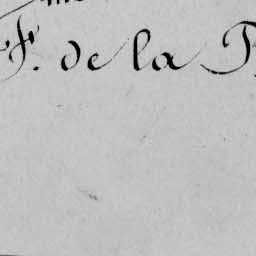 F. de la P